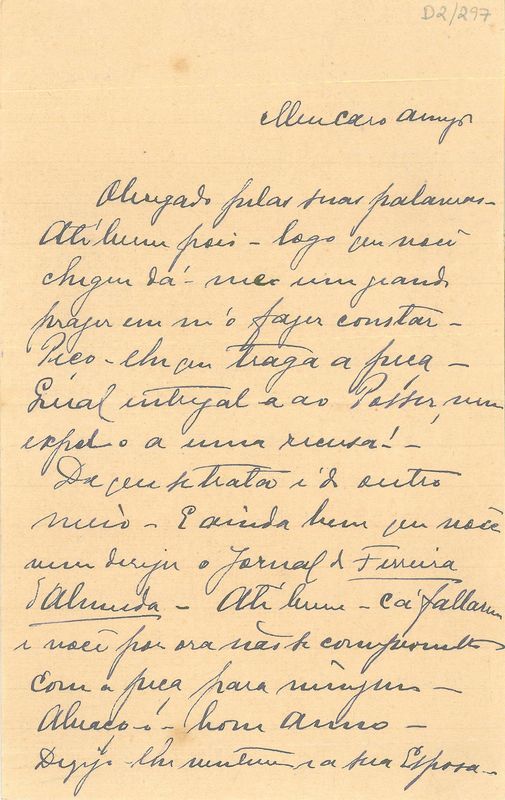 D2/297
Meu caro amigo
Obrigado pelas suas palavras -
Até breve pois - logo que você
chegue dá-me um grande
prazer em m'o fazer constar -
Peço-lhe que traga a peça -
integral a ao Posser, nem
a uma recusa! -
De que se trata é do outro
meio - E ainda bem que você
vem dirigir o Jornal de Ferreira
d'Almeida - Até breve - cá fallaremos
e você por ora não se compromette
com a peça para ninguem -
Abraço-o - bom anno -
Dezejo-lhe e a sua Esposa -